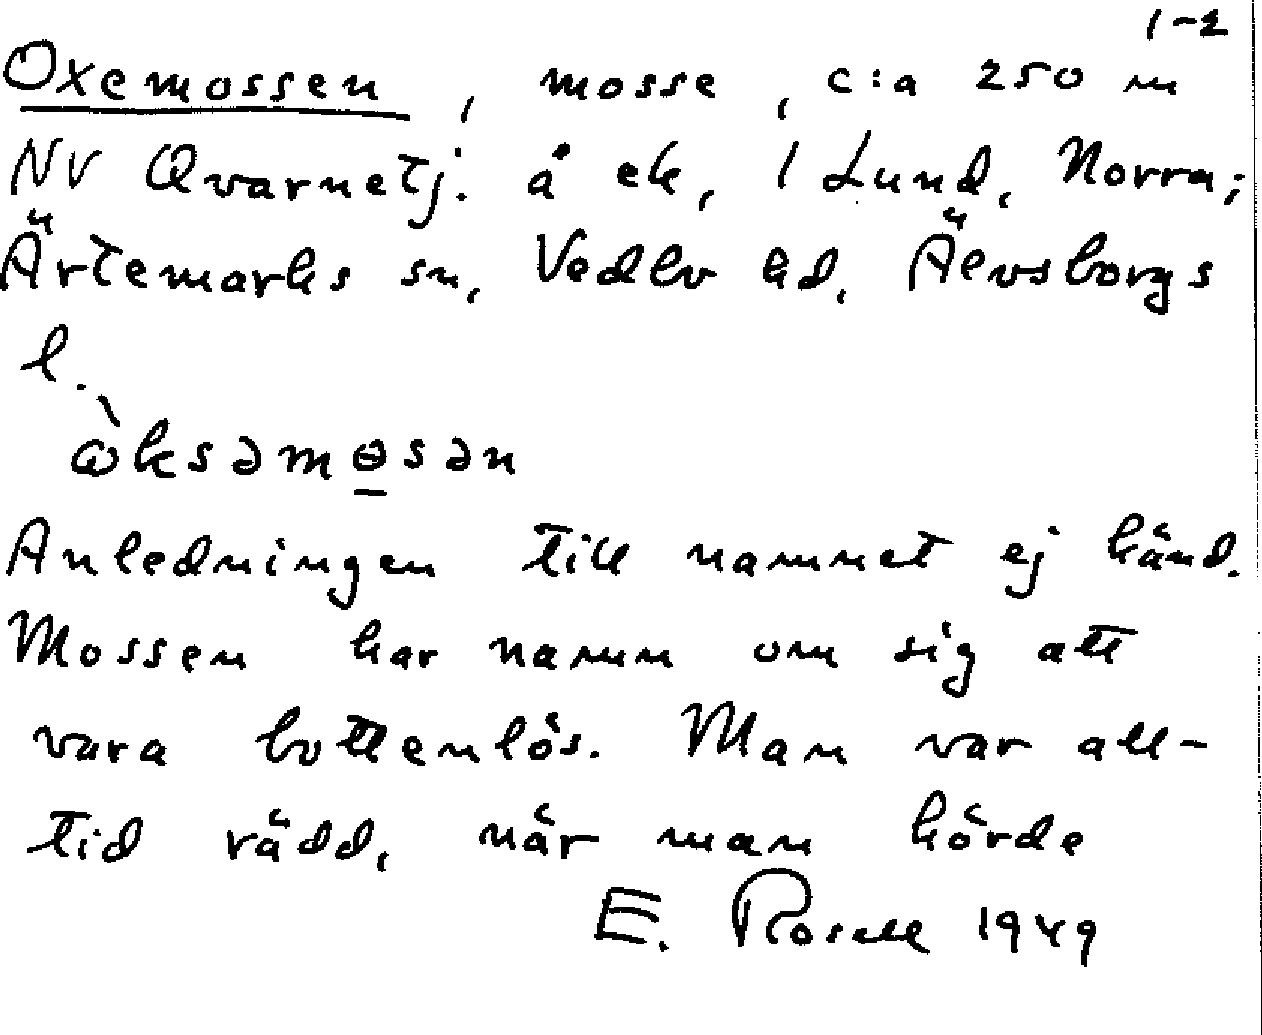 1-2
Oxemossen, mosse, c:a 250 m
NV Qvarnetj. å ek, 1 Lund, Norra;
Ärtemarks sn, Vedbo hd, Älvsborgs
l.
ὼksəmɵsən
Anledningen till namnet ej känd.
Mossen har namn om sig att
vara bottenlös. Man var all-
tid rädd, när man körde
E. Rosell 1949